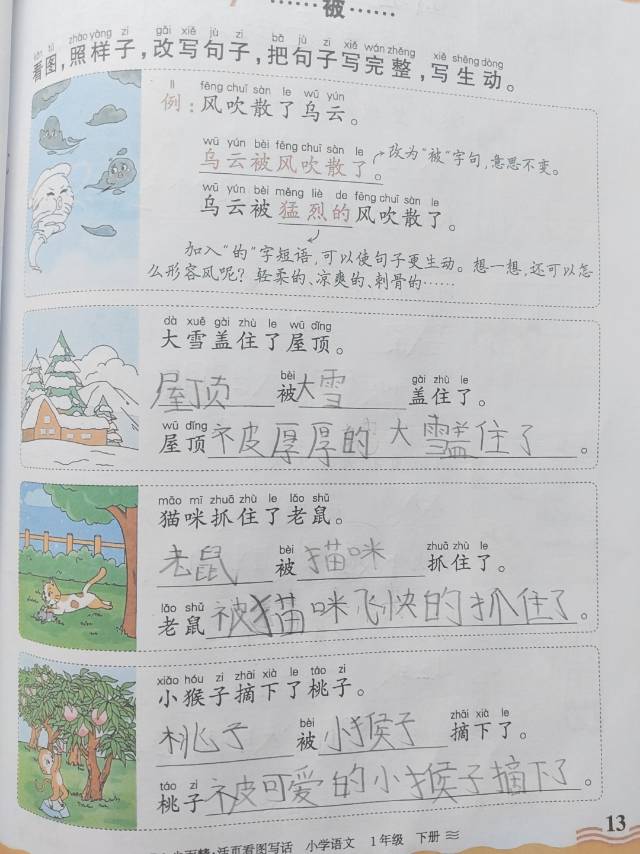 ……被……
kàn tú zhào yàng zi gǎi xiě jù zi bǎ jù zi xiě wán zhěng xiě shēng dòng
看图，照样子，改写句子，把句子写完整，写生动。
lì fēng chuī sàn le wū yún
例：风吹散了乌云。
wū yún bèi fēng chuī sàn le
乌云被风吹散了。 改为“被”字句，意思不变。
wū yún bèi měng liè de fēng chuī sàn le
乌云被猛烈的风吹散了。
加入“的”字短语，可以使句子更生动。想一想，还可以怎
么形容风呢？轻柔的、凉爽的、刺骨的……
dà xuě gài zhù le wū dǐng
大雪盖住了屋顶。
bèi gài zhù le
屋顶被大雪盖住了。
wū dǐng
屋顶被厚厚的大雪盖住了。
māo mī zhuā zhù le lǎo shǔ
猫咪抓住了老鼠。
bèi zhuā zhù le
老鼠被猫咪抓住了。
lǎo shǔ
老鼠被猫咪飞快的抓住了。
xiǎo hóu zi zhāi xià le táo zi
小猴子摘下了桃子。
bèi zhāi xià le
桃子被小猴子摘下了。
táo zi
桃子被可爱的小猴子摘下了。
13
活页看图写话 小学语文 1年级 下册